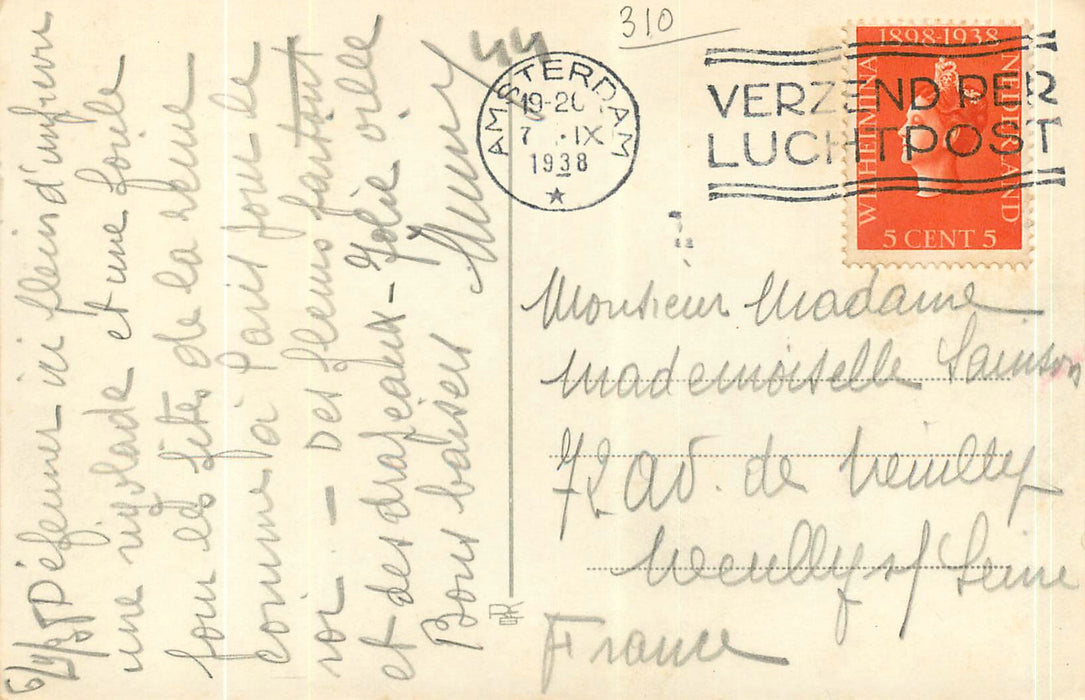 310
44
AMSTERDAM
19-20
7 IX
1938
VERZEND PER
LUCHTPOST
1898-1938
WILHELMINA
NEDERLAND
5 CENT 5
Déjeuner ici plein d'
une rigolade et une foule
pour les fêtes de la reine
comme à Paris pour le
roi - Des fleurs partout
et des drapeaux - Jolie ville
Bons baisers
Monsieur Madame
Mademoiselle Sainson
72 av. de Neuilly
Neuilly s/ Seine
France